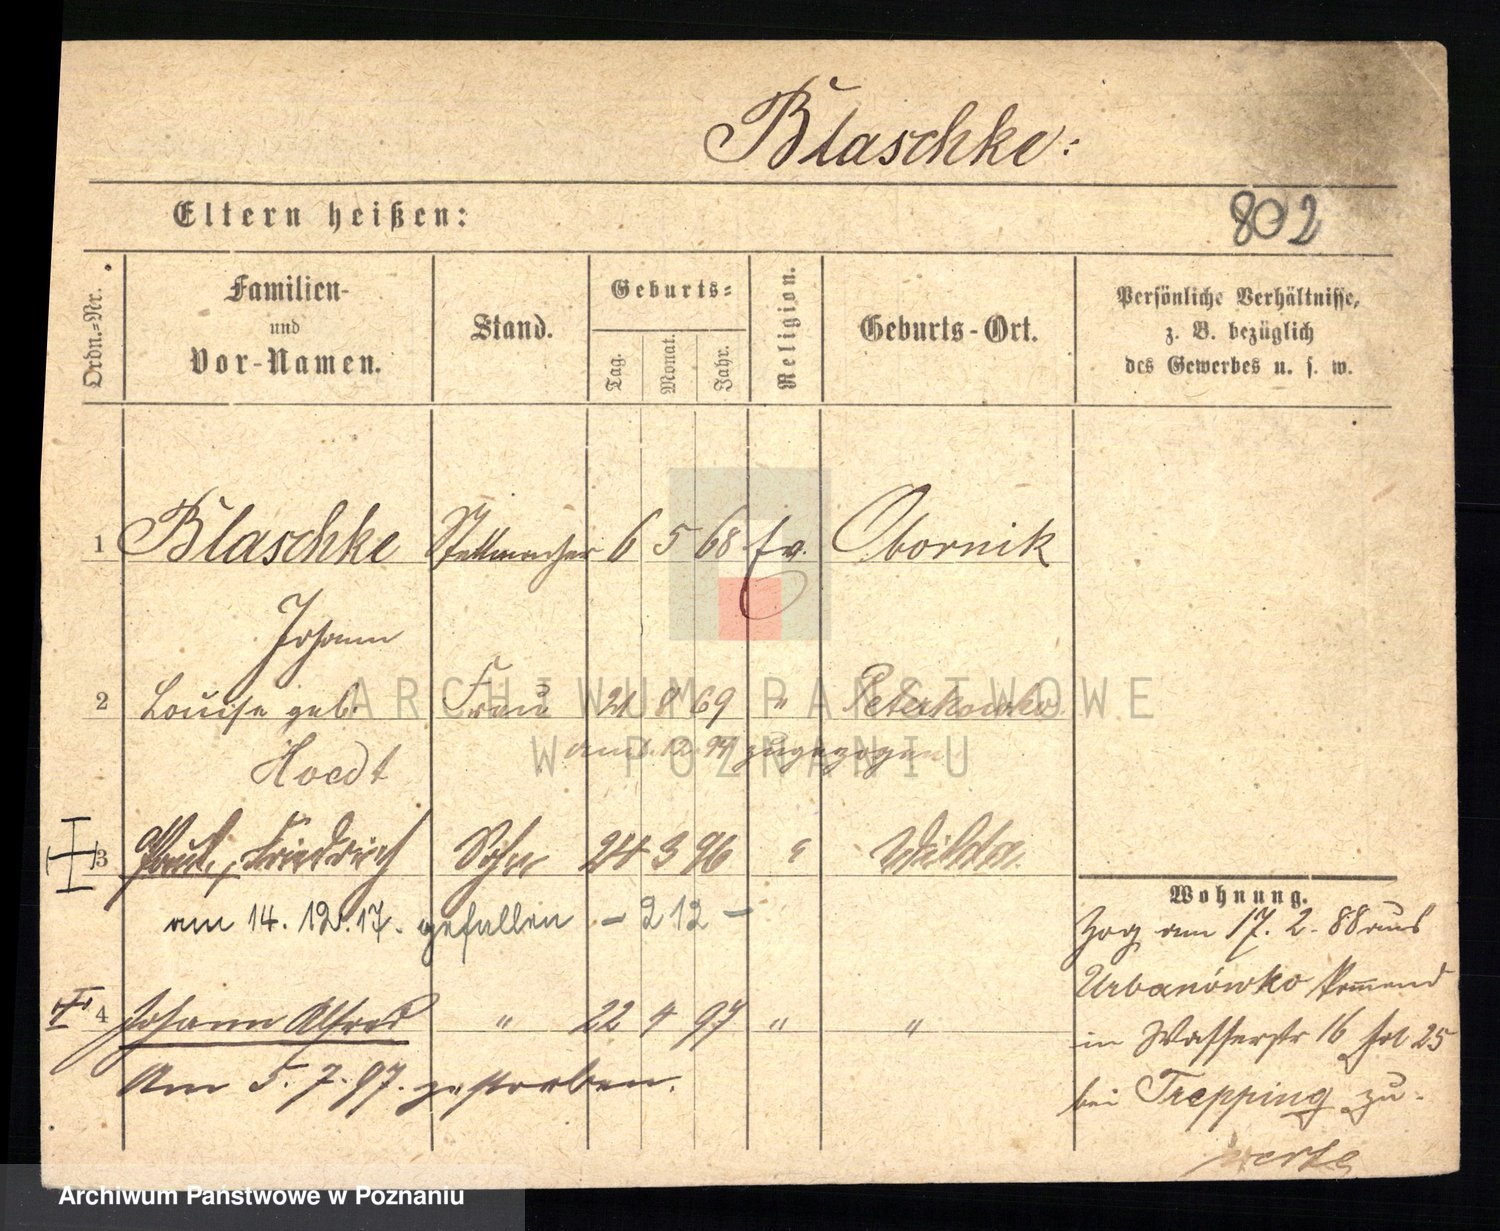 Blaschke:
Eltern heißen:
802
Ordn.=Nr.
Familien-
und
Vor-Namen.
Stand.
Geburts=
Tag.
Monat.
Jahr.
Religion.
Geburts-Ort.
Persönliche Verhältnisse,
z. B. bezüglich
des Gewerbes u. s. w.
1 Blaschke Stellmacher 6 5 68 ev. Obornik
Johann
2 Louise geb. Frau 21 8 69 " Peterkowko
Hoedt
zugezogen
3 Paul, Friedrich Sohn 24 3 96 " Wilda
am 14. 12. 17. gefallen - 212 -
4 Johann Alfred " 22 4 97 " "
Am 5. 7. 97. gestorben.
Wohnung.
Zog am 17. 2. 88 aus
Urbanówko kommend
in Wasserstr 16 25
bei Trepping zu.
ARCHIWUM PAŃSTWOWE
W POZNANIU
Archiwum Państwowe w Poznaniu